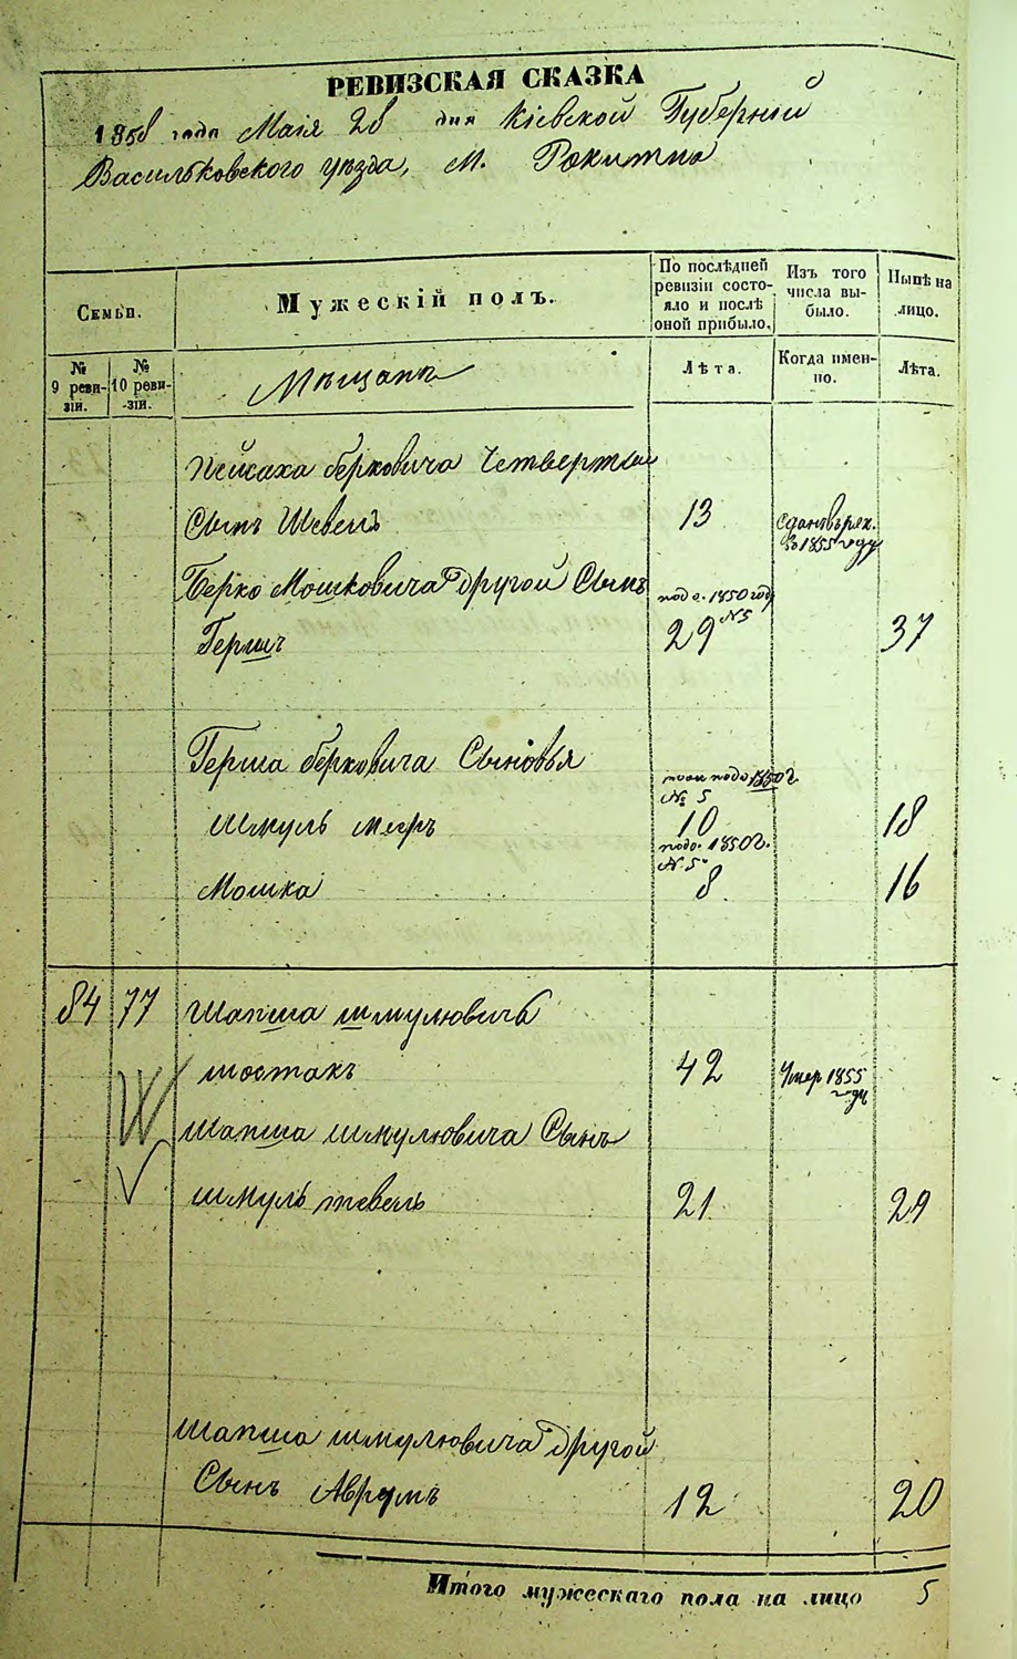 РЕВИЗСКАЯ СКАЗКА
1858 года Маія 28 дня Кіевской Губерніи
Васильковского уѣзда, М. Рокитно
Семьи.
Мужескій полъ.
По послѣдней ревизіи состояло и послѣ оной прибыло.
Изъ того числа выбыло.
Нынѣ на лицо.
№ 9 ревизіи.
№ 10 ревизіи.
Мѣщанъ
Лѣта.
Когда именно.
Лѣта.
Пейсаха Берковича Четвертый
Сынъ Шевель 13 Сданъ въ рек. въ 1855 году
Берко Мошковича Другой Сынъ под. 1850 год № 5
Гершъ 29 37
Герша Берковича Сыновья
подо 1850 г № 5
Шмуль Меръ 10 18
подо. 1850 г. № 5
Мошка 8 16
84 77 Шапша Шмулювичъ
Шостакъ 42 Умер 1855 году
Шапша Шмулювича Сынъ
Шмуль Тевель 21 29
Шапша Шмулювича Другой
Сынъ Аврумъ 12 20
Итого мужескаго пола на лицо 5